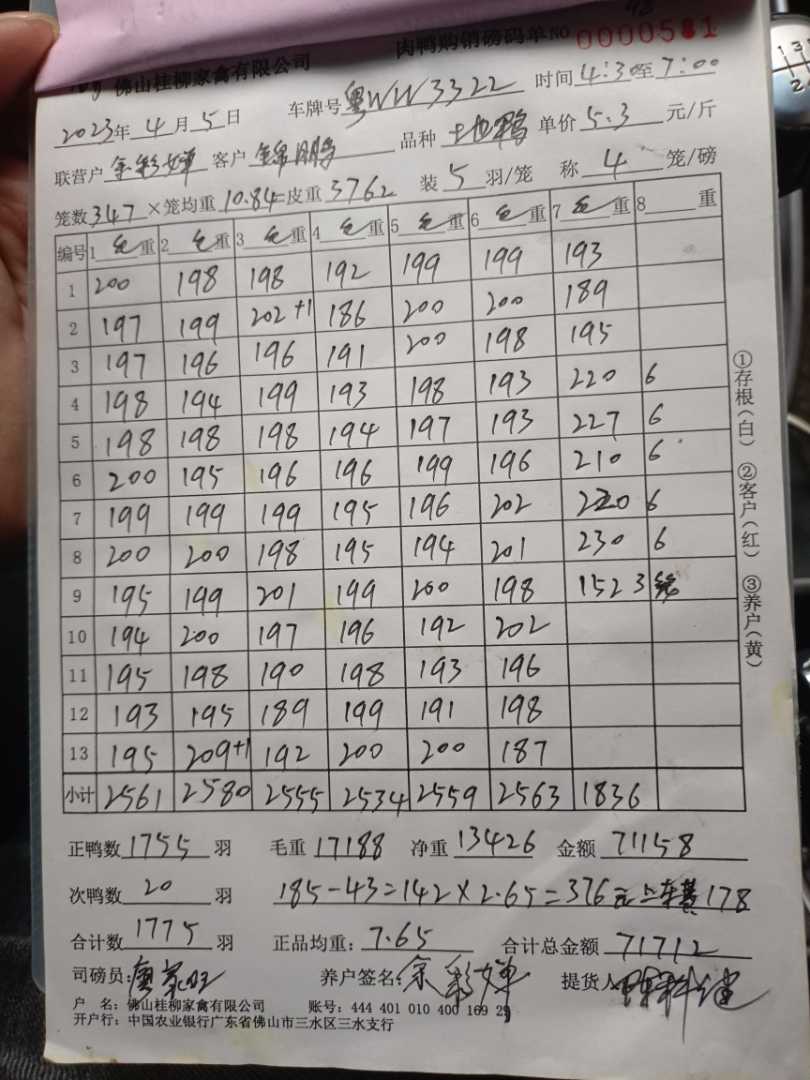 佛山桂柳家禽有限公司 肉鸭购销磅码单NO 0000581
2023年 4月 5日 车牌号粤WW3322 时间4:30至7:00
联营户余彩婵 客户 锦鹏 品种 土北鸭 单价5.3元/斤
笼数347×笼均重10.84=皮重3762 装5羽/笼 称4笼/磅
编号 1毛重 2毛重 3毛重 4毛重 5毛重 6毛重 7毛重 8重
1 200 198 198 192 199 199 193
2 197 199 202+1 186 200 200 189
3 197 196 196 191 200 198 195
4 198 194 199 193 198 193 220 6
5 198 198 198 194 197 193 227 6
6 200 195 196 196 199 196 210 6
7 199 199 199 195 196 202 220 6
8 200 200 198 195 194 201 230 6
9 195 199 201 199 200 198 152 3笼
10 194 200 197 196 192 202
11 195 198 190 198 193 196
12 193 195 189 199 191 198
13 195 209+1 192 200 200 187
小计 2561 2580 2555 2534 2559 2563 1836
正鸭数1755羽 毛重17188 净重13426 金额71158
次鸭数20羽 185-43=142×2.65=376元 178
合计数1775羽 正品均重:7.65 合计总金额71712
司磅员: 养户签名:余彩婵 提货人
户 名:佛山桂柳家禽有限公司 账号:444 401 010 400 169 29
开户行:中国农业银行广东省佛山市三水区三水支行
①存根(白) ②客户(红) ③养户(黄)